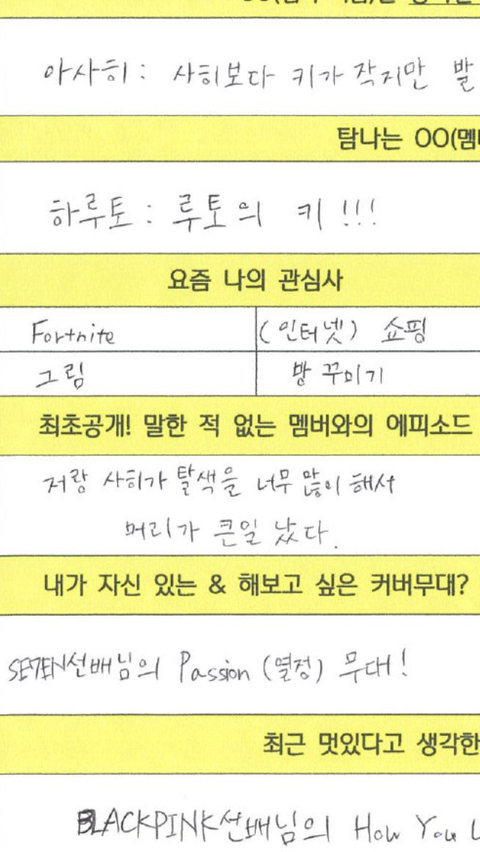 아사히 : 사히보다 키가 작지만 발
탐나는 OO(멤
하루토 : 루토의 키 !!!
요즘 나의 관심사
Fortnite (인터넷) 쇼핑
그림 방 꾸미기
최초공개! 말한 적 없는 멤버와의 에피소드
저랑 사히가 탈색을 너무 많이 해서
머리가 큰일 났다.
내가 자신 있는 & 해보고 싶은 커버무대?
SE7EN선배님의 Passion (열정) 무대!
최근 멋있다고 생각한
BLACKPINK선배님의 How You L